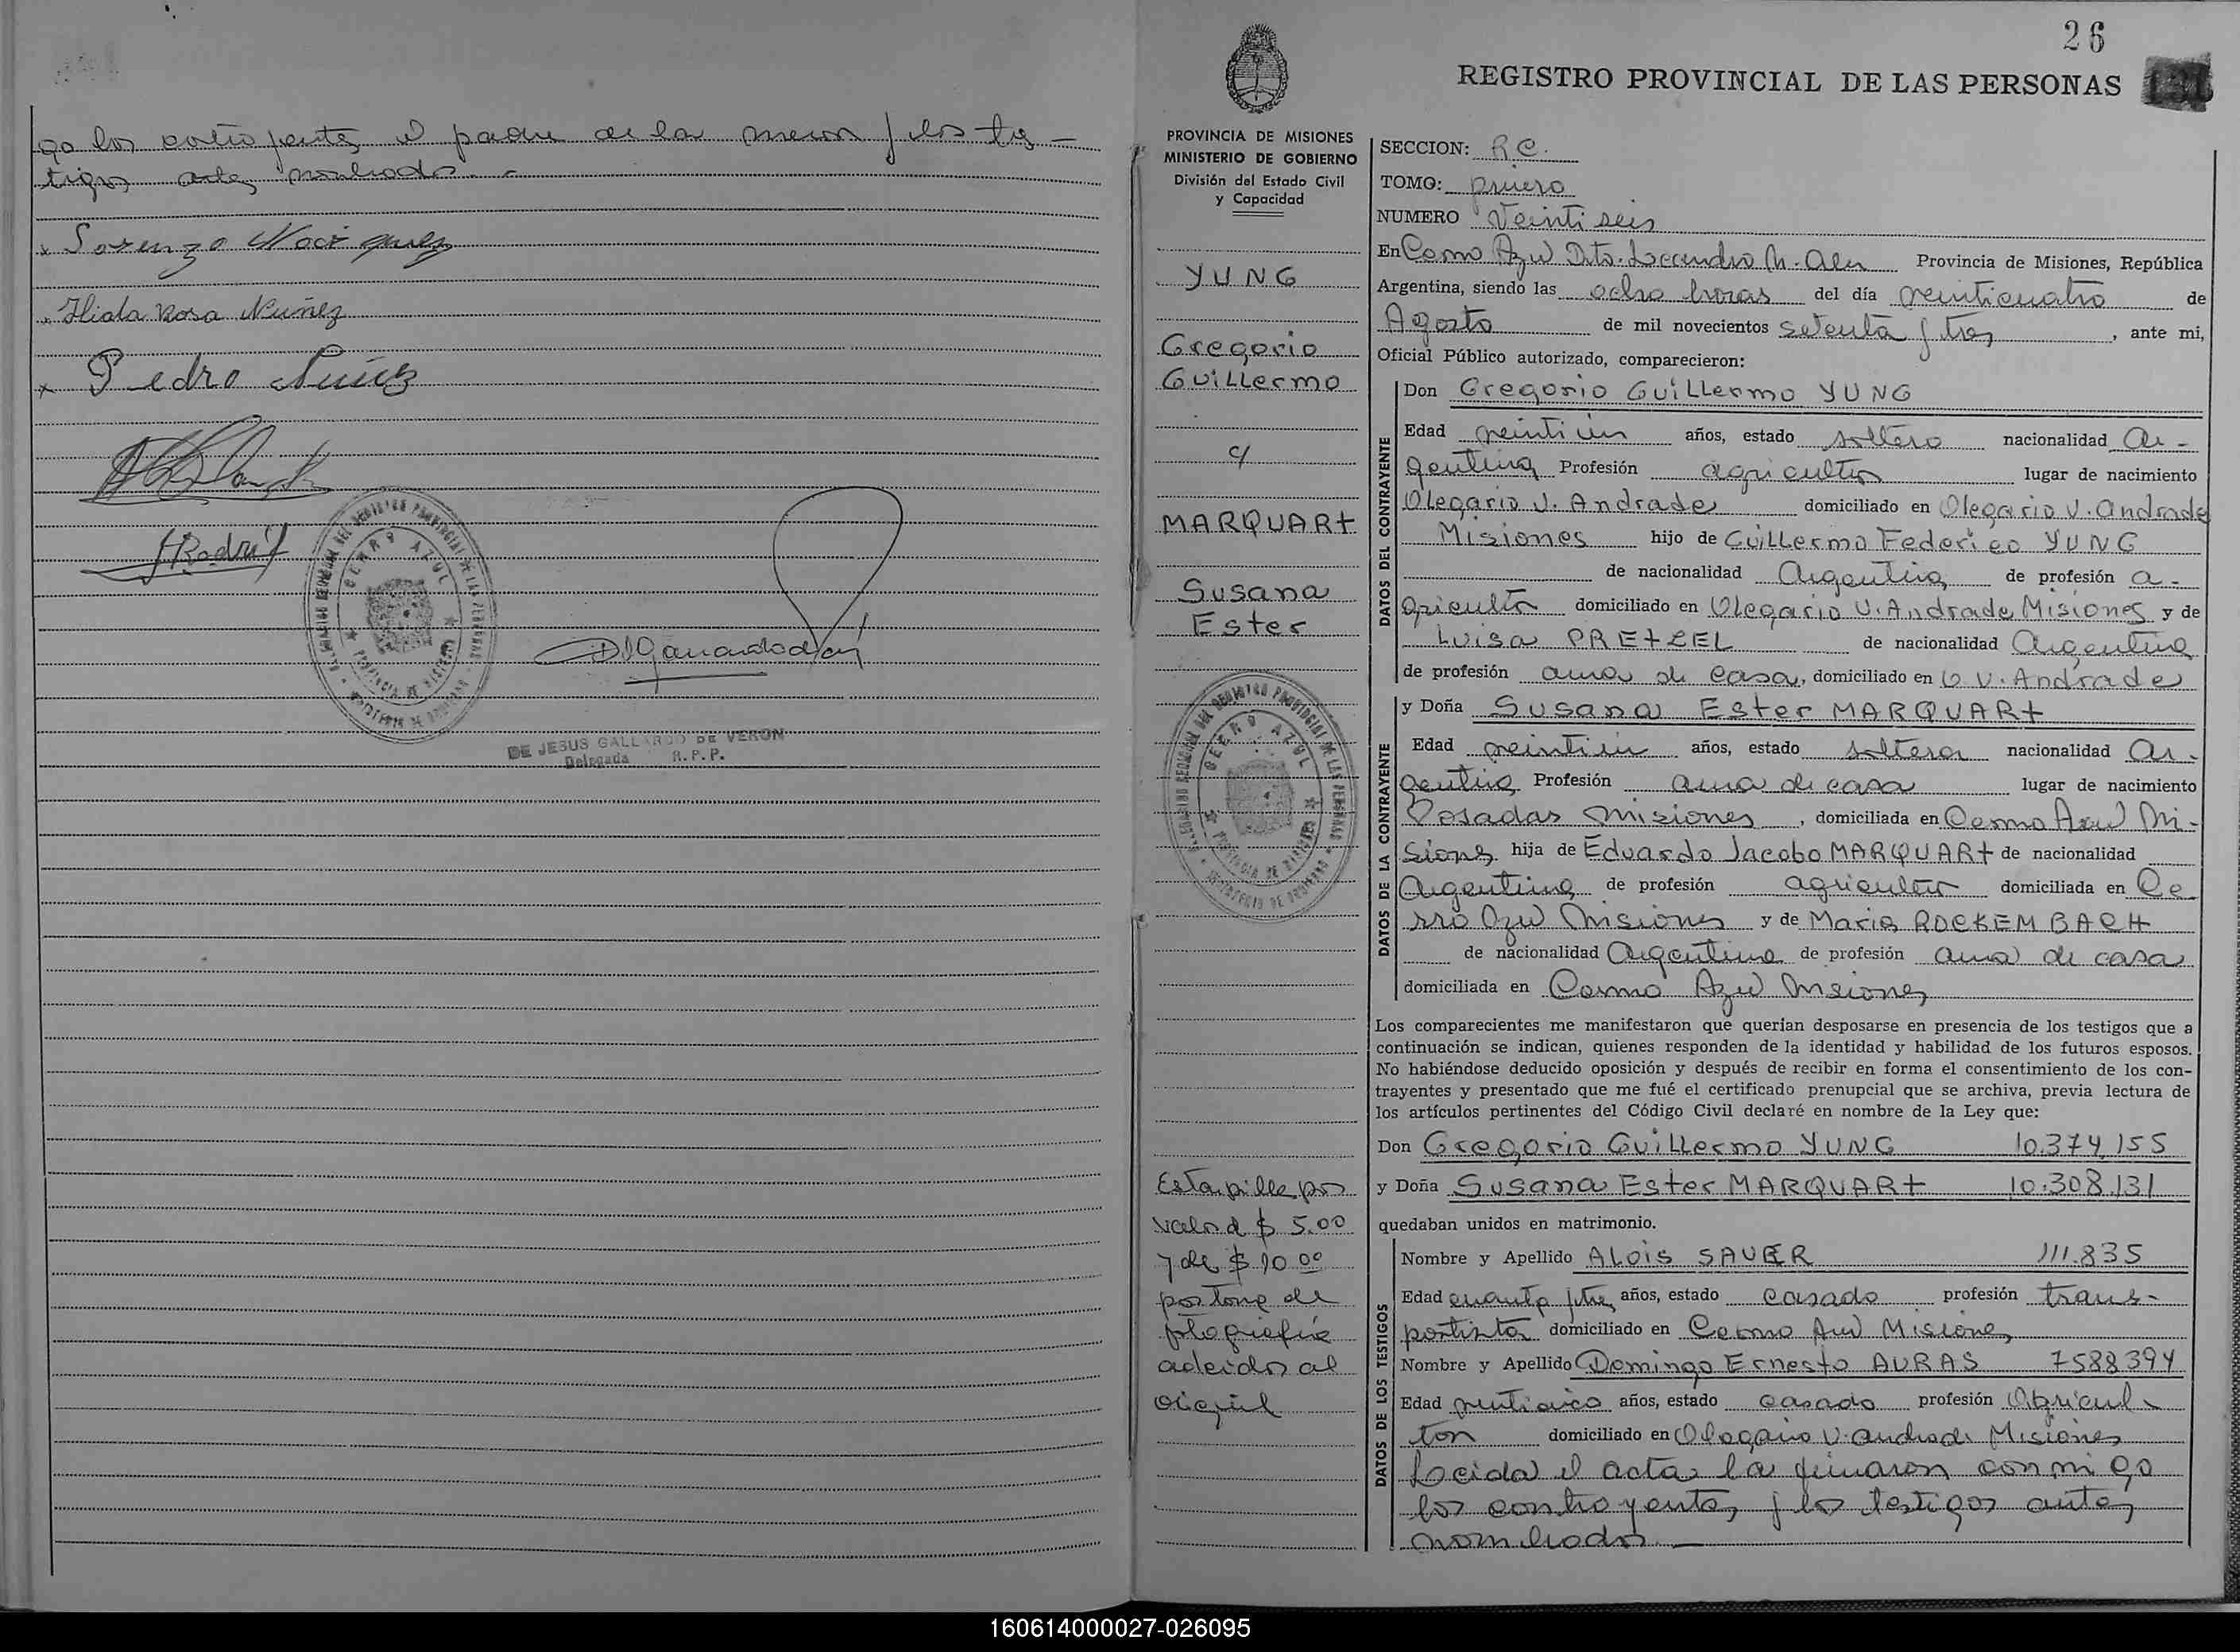 go los contrayentes el padre de la menor y los tes-
tigos antes nombrados.-
x Lorenzo
x Hilda Rosa Nuñez
x Pedro Nuñez
CERRO AZUL
DE JESUS GALLARDO DE VERON
Delegada R.P.P.
26
REGISTRO PROVINCIAL DE LAS PERSONAS
PROVINCIA DE MISIONES
MINISTERIO DE GOBIERNO
División del Estado Civil
y Capacidad
YUNG
Gregorio
Guillermo
c/
MARQUARt
Susana
Ester
CERRO AZUL
Estampilla por
valor d $ 5.00
y de $ 10.00
por tone de
aderidos al
original
SECCION: R.C.
TOMO: primero
NUMERO Veintiseis
En Cerro Azul Dto. Leandro N. Alem Provincia de Misiones, República
Argentina, siendo las ocho horas del día veinticuatro de
Agosto de mil novecientos setenta y tres, ante mi,
Oficial Público autorizado, comparecieron:
DATOS DEL CONTRAYENTE
Don Gregorio Guillermo YUNG
Edad veintiun años, estado soltero nacionalidad Ar-
gentina Profesión agricultor lugar de nacimiento
Olegario V. Andrade domiciliado en Olegario V. Andrade
Misiones hijo de Guillermo Federico YUNG
de nacionalidad Argentina de profesión a-
gricultor domiciliado en Olegario V. Andrade Misiones y de
Luisa PREtZEL de nacionalidad Argentina
de profesión ama de casa, domiciliado en O V. Andrade
DATOS DE LA CONTRAYENTE
y Doña Susana Ester MARQUARt
Edad veintiun años, estado soltera nacionalidad Ar-
gentina Profesión ama de casa lugar de nacimiento
Posadas Misiones, domiciliada en Cerro Azul Mi-
siones hija de Eduardo Jacobo MARQUARt de nacionalidad
Argentina de profesión agricultor domiciliada en Ce-
rro Azul Misiones y de Maria ROCKEMBACH
de nacionalidad Argentina de profesión ama de casa
domiciliada en Cerro Azul Misiones
Los comparecientes me manifestaron que querían desposarse en presencia de los testigos que a
continuación se indican, quienes responden de la identidad y habilidad de los futuros esposos.
No habiéndose deducido oposición y después de recibir en forma el consentimiento de los con-
trayentes y presentado que me fué el certificado prenupcial que se archiva, previa lectura de
los artículos pertinentes del Código Civil declaré en nombre de la Ley que:
Don Gregorio Guillermo YUNG 10.374.155
y Doña Susana Ester MARQUARt 10.308.131
quedaban unidos en matrimonio.
DATOS DE LOS TESTIGOS
Nombre y Apellido ALOiS SAUER 111.835
Edad años, estado casado profesión trans-
portista domiciliado en Cerro Azul Misiones
Nombre y Apellido Domingo Ernesto AURAS 7588394
Edad veinticinco años, estado casado profesión Agricul-
tor domiciliado en Olegario V. Andrade Misiones
Leida el acta la firmaron conmigo
los contrayentes y los testigos antes
nombrados.-
160614000027-026095